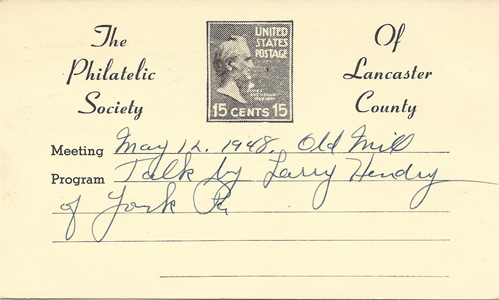 The
Philatelic
Society
UNITED
STATES
POSTAGE
15 CENTS 15
Of
Lancaster
County
Meeting May 12. 1948. Old Mill
Program Talk by Larry Hendry
of York Pa